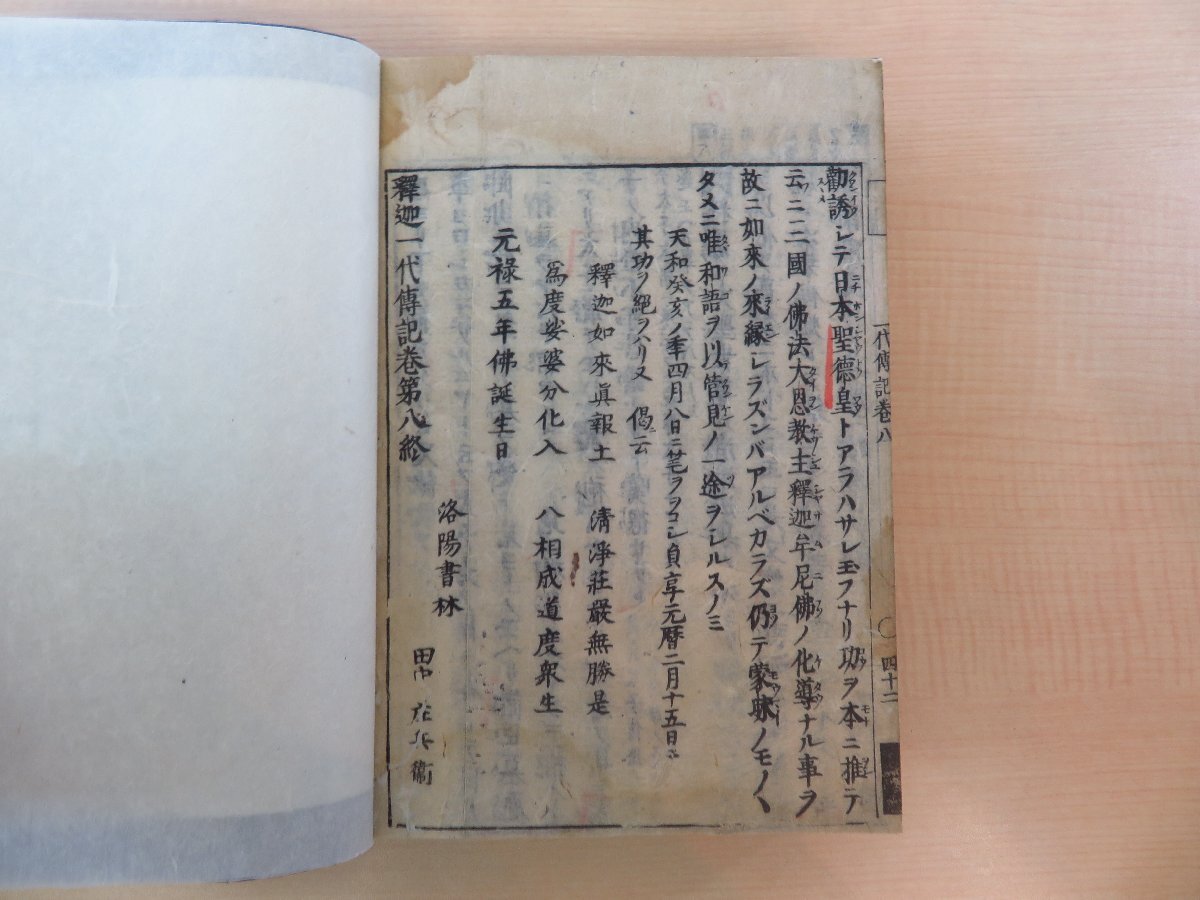 一代傳記巻八
四十二
勸誘シテ日本聖德皇トアラハサレ玉フナリ功ヲ本ニ推テ
云ニ三國ノ佛法大恩教主釋迦牟尼佛ノ化導ナル事ヲ
故ニ如來ノ來縁シラズンバアルベカラズ仍テ蒙昧ノモノヽ
タメニ唯和語ヲ以管見ノ一途ヲシルスノミ
天和癸亥ノ季四月八日ニ筆ヲヲコシ貞享元暦二月十五日ニ
其功ヲ絕ヲハリヌ 偈云
釋迦如來眞報土 清淨莊嚴無勝是
爲度娑婆分化入 八相成道度衆生
元禄五年佛誕生日
洛陽書林 田中庄兵衞
釋迦一代傳記巻第八終